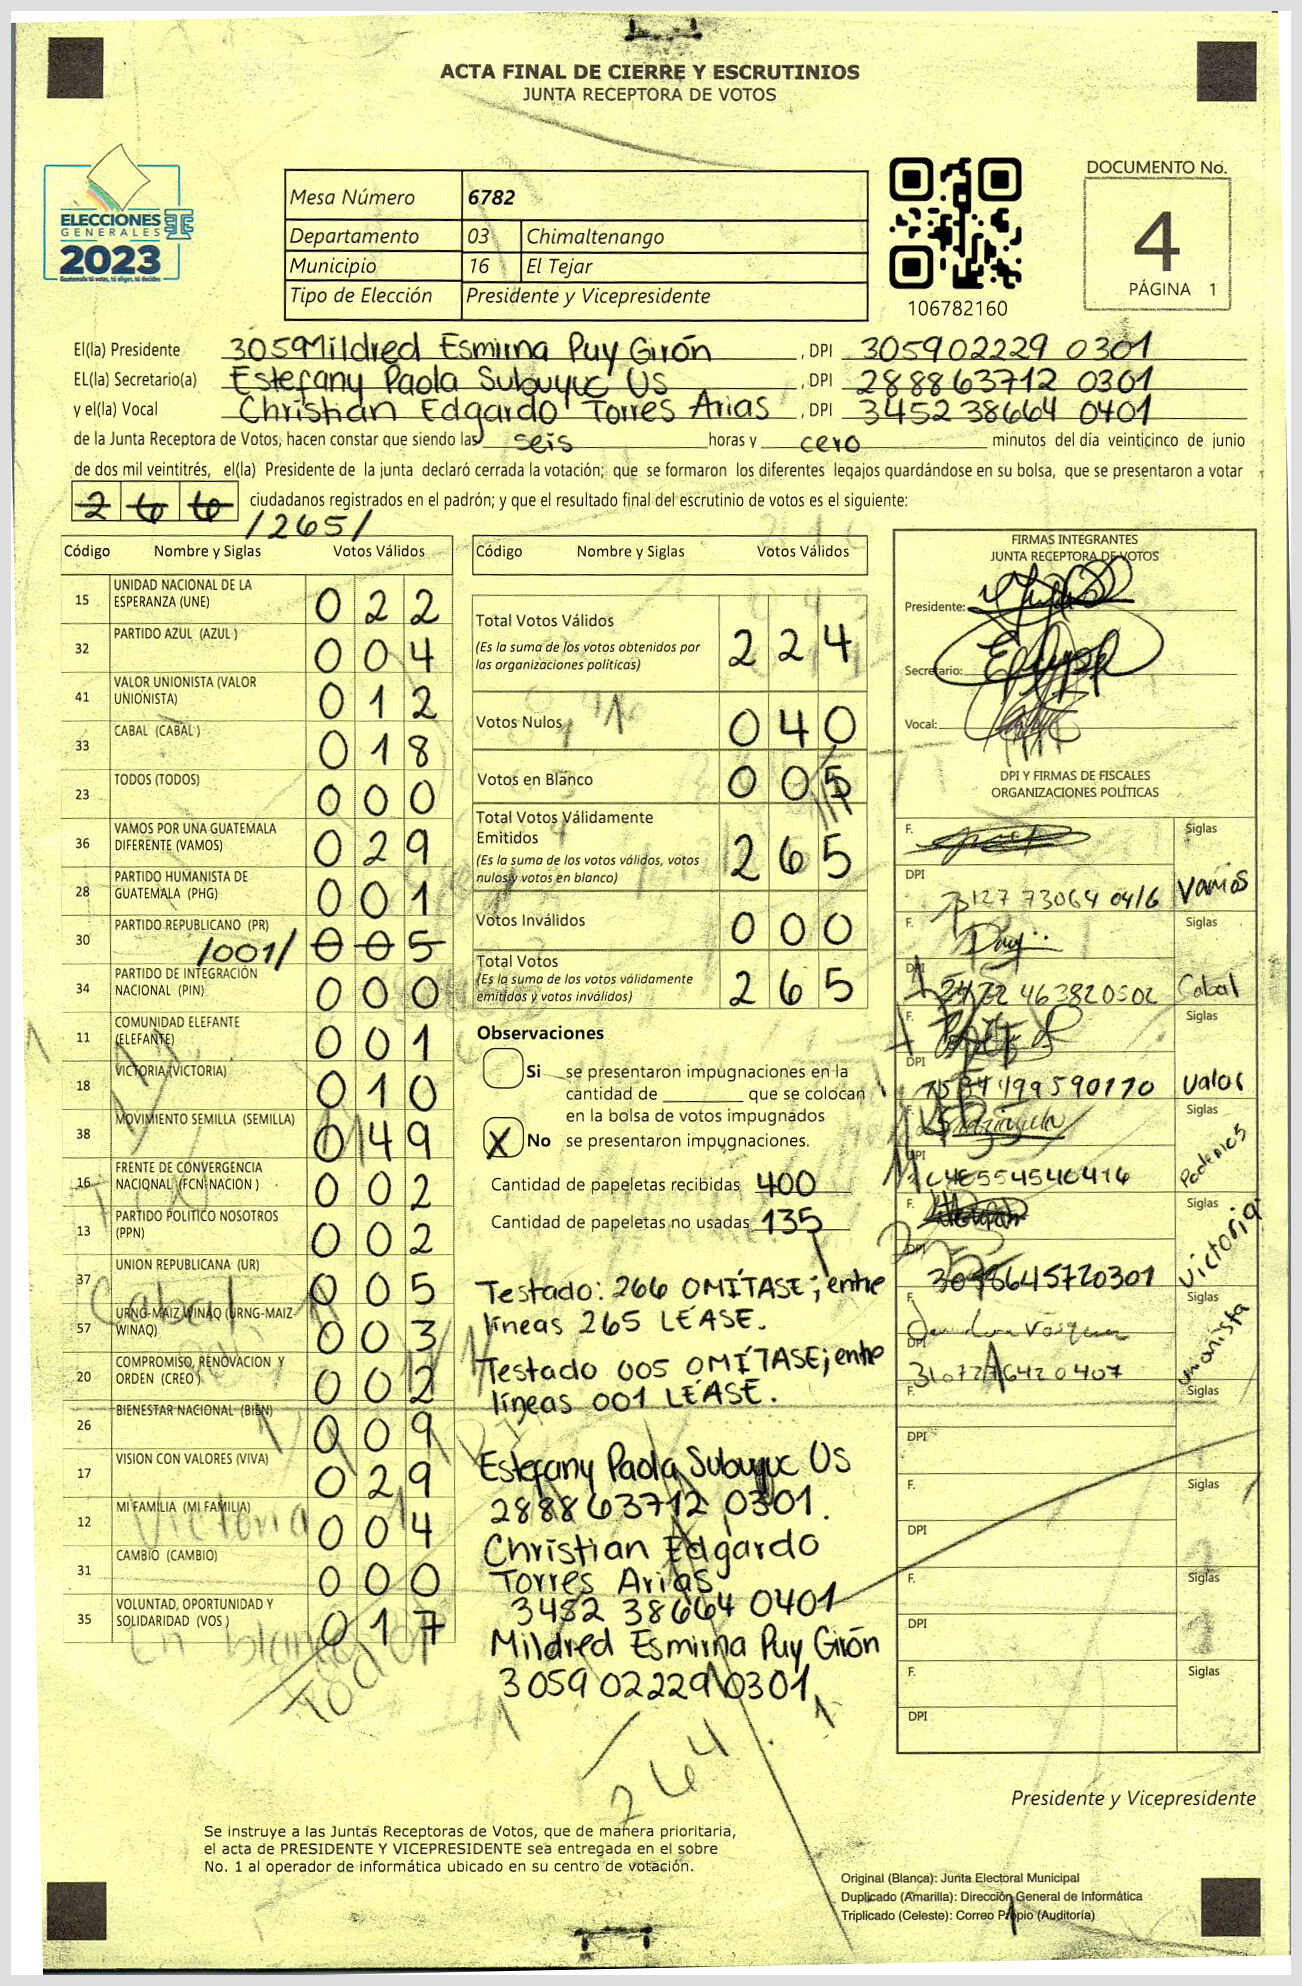 ACTA FINAL DE CIERRE Y ESCRUTINIOS
JUNTA RECEPTORA DE VOTOS
ELECCIONES
GENERALES
2023
Guatemala tú votas, tú eliges, tú decides
Mesa Número 6782
Departamento 03 Chimaltenango
Municipio 16 El Tejar
Tipo de Elección Presidente y Vicepresidente
106782160
DOCUMENTO No.
4
PÁGINA 1
El(la) Presidente 3059Mildred Esmirna Puy Girón , DPI 305902229 0301
EL(la) Secretario(a) Estefany Paola Subuyuc Us , DPI 288863712 0301
y el(la) Vocal Christian Edgardo Torres Arias , DPI 345238664 0401
de la Junta Receptora de Votos, hacen constar que siendo las seis horas y cero minutos del día veinticinco de junio
de dos mil veintitrés, el(la) Presidente de la junta declaró cerrada la votación; que se formaron los diferentes legajos quardándose en su bolsa, que se presentaron a votar
2 6 6 ciudadanos registrados en el padrón; y que el resultado final del escrutinio de votos es el siguiente:
/265/
Código Nombre y Siglas Votos Válidos
15 UNIDAD NACIONAL DE LA ESPERANZA (UNE) 0 2 2
32 PARTIDO AZUL (AZUL ) 0 0 4
41 VALOR UNIONISTA (VALOR UNIONISTA) 0 1 2
33 CABAL (CABAL ) 0 1 8
23 TODOS (TODOS) 0 0 0
36 VAMOS POR UNA GUATEMALA DIFERENTE (VAMOS) 0 2 9
28 PARTIDO HUMANISTA DE GUATEMALA (PHG) 0 0 1
30 PARTIDO REPUBLICANO (PR) /001/ 0 0 5
34 PARTIDO DE INTEGRACIÓN NACIONAL (PIN) 0 0 0
11 COMUNIDAD ELEFANTE (ELEFANTE) 0 0 1
18 VICTORIA (VICTORIA) 0 1 0
38 MOVIMIENTO SEMILLA (SEMILLA) 0 4 9
16 FRENTE DE CONVERGENCIA NACIONAL (FCN-NACION ) 0 0 2
13 PARTIDO POLITICO NOSOTROS (PPN) 0 0 2
37 UNION REPUBLICANA (UR) 0 0 5
57 URNG-MAIZ WINAQ (URNG-MAIZ-WINAQ) 0 0 3
20 COMPROMISO, RENOVACION Y ORDEN (CREO ) 0 0 2
26 BIENESTAR NACIONAL (BIEN) 0 0 9
17 VISION CON VALORES (VIVA) 0 2 9
12 MI FAMILIA (MI FAMILIA) 0 0 4
31 CAMBIO (CAMBIO) 0 0 0
35 VOLUNTAD, OPORTUNIDAD Y SOLIDARIDAD (VOS ) 0 1 7
Cabal
Victoria
En blanco
Todos
Código Nombre y Siglas Votos Válidos
Total Votos Válidos 2 2 4
(Es la suma de los votos obtenidos por
las organizaciones políticas)
Votos Nulos 0 4 0
Votos en Blanco 0 0 5
Total Votos Válidamente
Emitidos 2 6 5
(Es la suma de los votos válidos, votos
nulos y votos en blanco)
Votos Inválidos 0 0 0
Total Votos 2 6 5
(Es la suma de los votos válidamente
emitidos y votos inválidos)
Observaciones
Si se presentaron impugnaciones en la
cantidad de ________ que se colocan
en la bolsa de votos impugnados
X No se presentaron impugnaciones.
Cantidad de papeletas recibidas 400
Cantidad de papeletas no usadas 135
Testado: 266 OMÍTASE; entre
líneas 265 LÉASE.
Testado 005 OMÍTASE; entre
líneas 001 LÉASE.
Estefany Paola Subuyuc Us
288863712 0301.
Christian Edgardo
Torres Arias
3452 38664 0401
Mildred Esmirna Puy Girón
3059 02229 0301
264
FIRMAS INTEGRANTES
JUNTA RECEPTORA DE VOTOS
Presidente:
Secretario:
Vocal:
DPI Y FIRMAS DE FISCALES
ORGANIZACIONES POLÍTICAS
F. Siglas
DPI 73064 0416 Vamos
F. Siglas
DPI 463820502 Cabal
F. Siglas
DPI 499590170 Valor
F. Siglas
DPI Podemos
F. Siglas
DPI 3098645720301 Victoria
F. Siglas
DPI Unionista
F. Siglas
DPI
F. Siglas
DPI
F. Siglas
DPI
F. Siglas
DPI
Presidente y Vicepresidente
Se instruye a las Juntas Receptoras de Votos, que de manera prioritaria,
el acta de PRESIDENTE Y VICEPRESIDENTE sea entregada en el sobre
No. 1 al operador de informática ubicado en su centro de votación.
Original (Blanca): Junta Electoral Municipal
Duplicado (Amarilla): Dirección General de Informática
Triplicado (Celeste): Correo Propio (Auditoría)